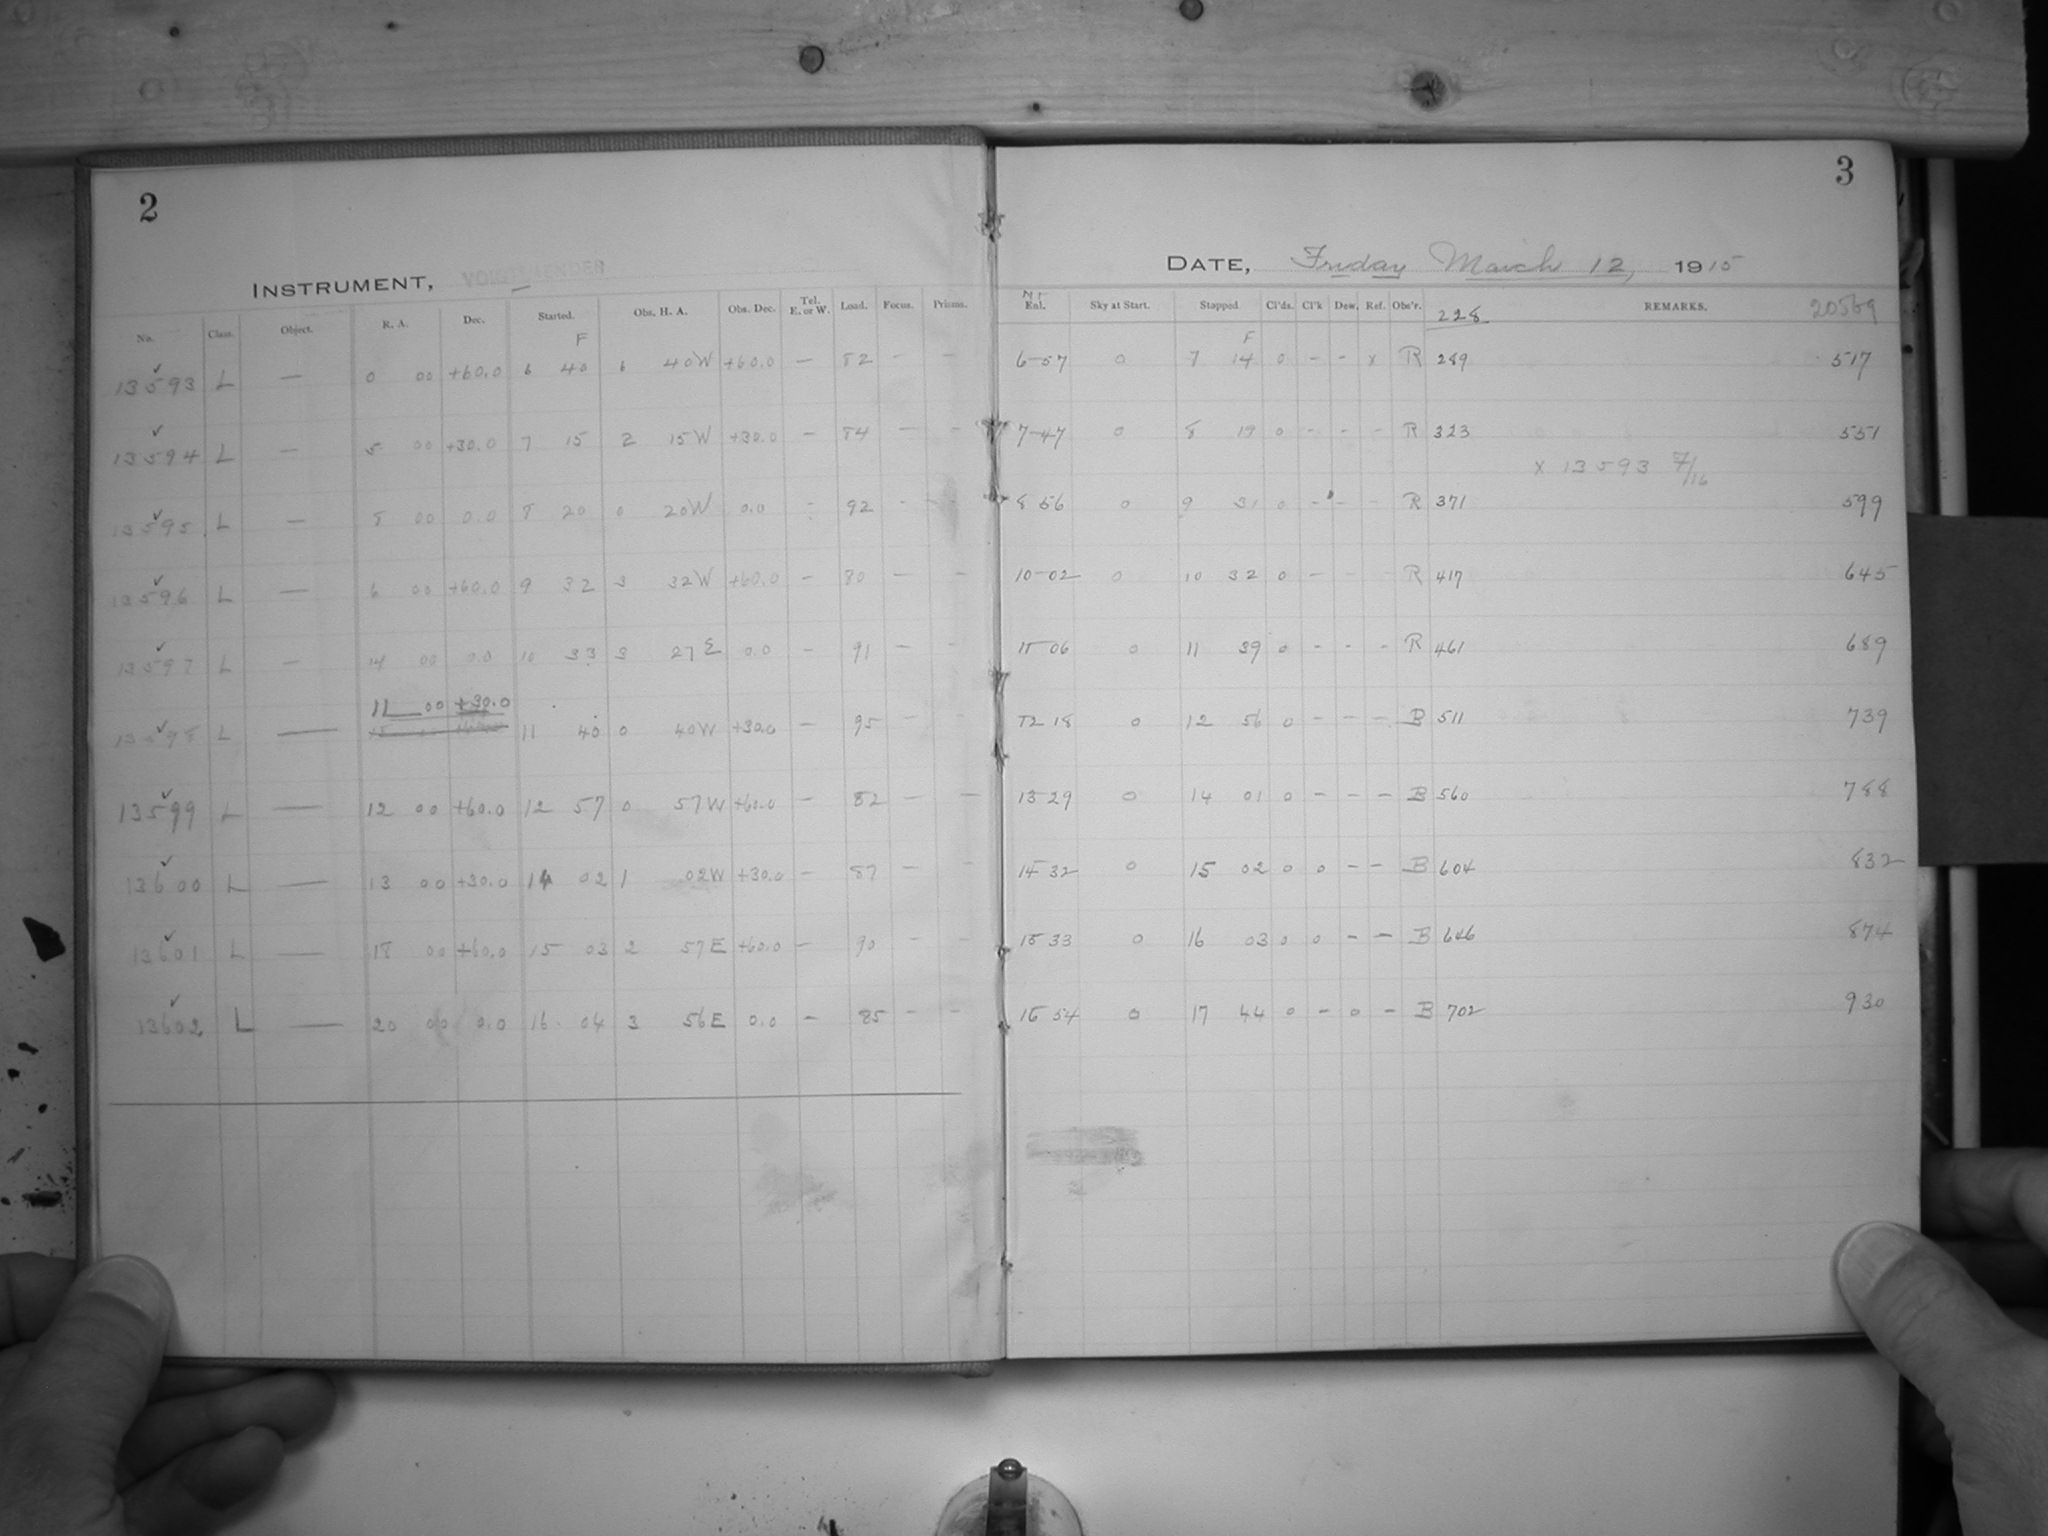 2
INSTRUMENT, VOIGTLAENDER
No. Class. Object. R. A. Dec. Started. Obs. H. A. Obs. Dec. Tel. E. or W. Load. Focus. Prisms.
F
13593 L — 0 00 +60.0 6 40 6 40W +60.0 — 82 — —
13594 L — 5 00 +30.0 7 15 2 15W +30.0 — 84 — —
13595 L — 8 00 0.0 8 20 0 20W 0.0 — 92 — —
13596 L — 6 00 +60.0 9 32 3 32W +60.0 — 80 — —
13597 L — 14 00 0.0 10 33 3 27E 0.0 — 91 — —
11 00 +30.0
13598 L — 11 40 0 40W +30.0 — 95 — —
13599 L — 12 00 +60.0 12 57 0 57W +60.0 — 82 — —
13600 L — 13 00 +30.0 14 02 1 02W +30.0 — 87 — —
13601 L — 18 00 +60.0 15 03 2 57E +60.0 — 90 — —
13602 L — 20 00 0.0 16 04 3 56E 0.0 — 85 — —
3
DATE, Friday March 12, 1915
Enl. Sky at Start. Stopped Cl'ds. Cl'k Dew, Ref. Obs'r. 228 REMARKS. 20569
F
6-57 0 7 14 0 - - x R 289 517
7-47 0 8 19 0 - - - R 323 551
x 13593 7/16
8 56 0 9 31 0 - - - R 371 599
10-02 0 10 32 0 - R 417 645
11 06 0 11 39 0 - - - R 461 689
12 18 0 12 56 0 - - - B 511 739
13 29 0 14 01 0 - - - B 560 788
14 32 0 15 02 0 0 - - B 604 832
15 33 0 16 03 0 0 - - B 646 874
16 54 0 17 44 0 - 0 - B 702 930